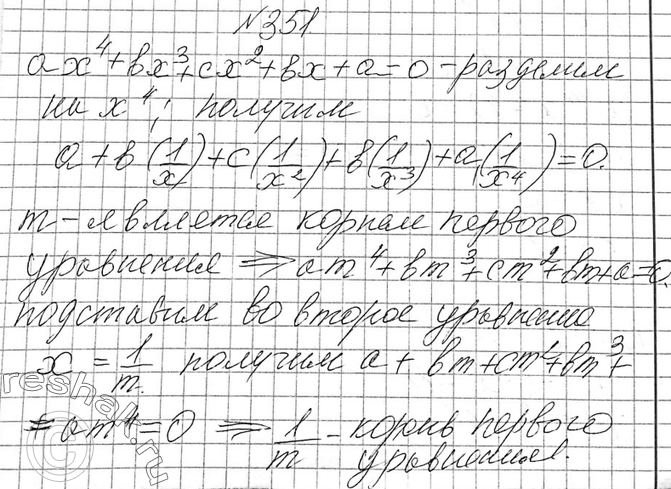 №351.
ax⁴+вx³+cx²+вx+a=0 - разделим
на x⁴; получим
a+в(1/x)+c(1/x²)+в(1/x³)+a(1/x⁴)=0.
m - является корнем первого
уравнения ⇒ am⁴+вm³+cm²+вm+a=0.
подставим во второе уравнение
x = 1/m получим a+вm+cm²+вm³+
+am⁴=0 ⇒ 1/m - корень первого
уравнения.
reshak.ru
©